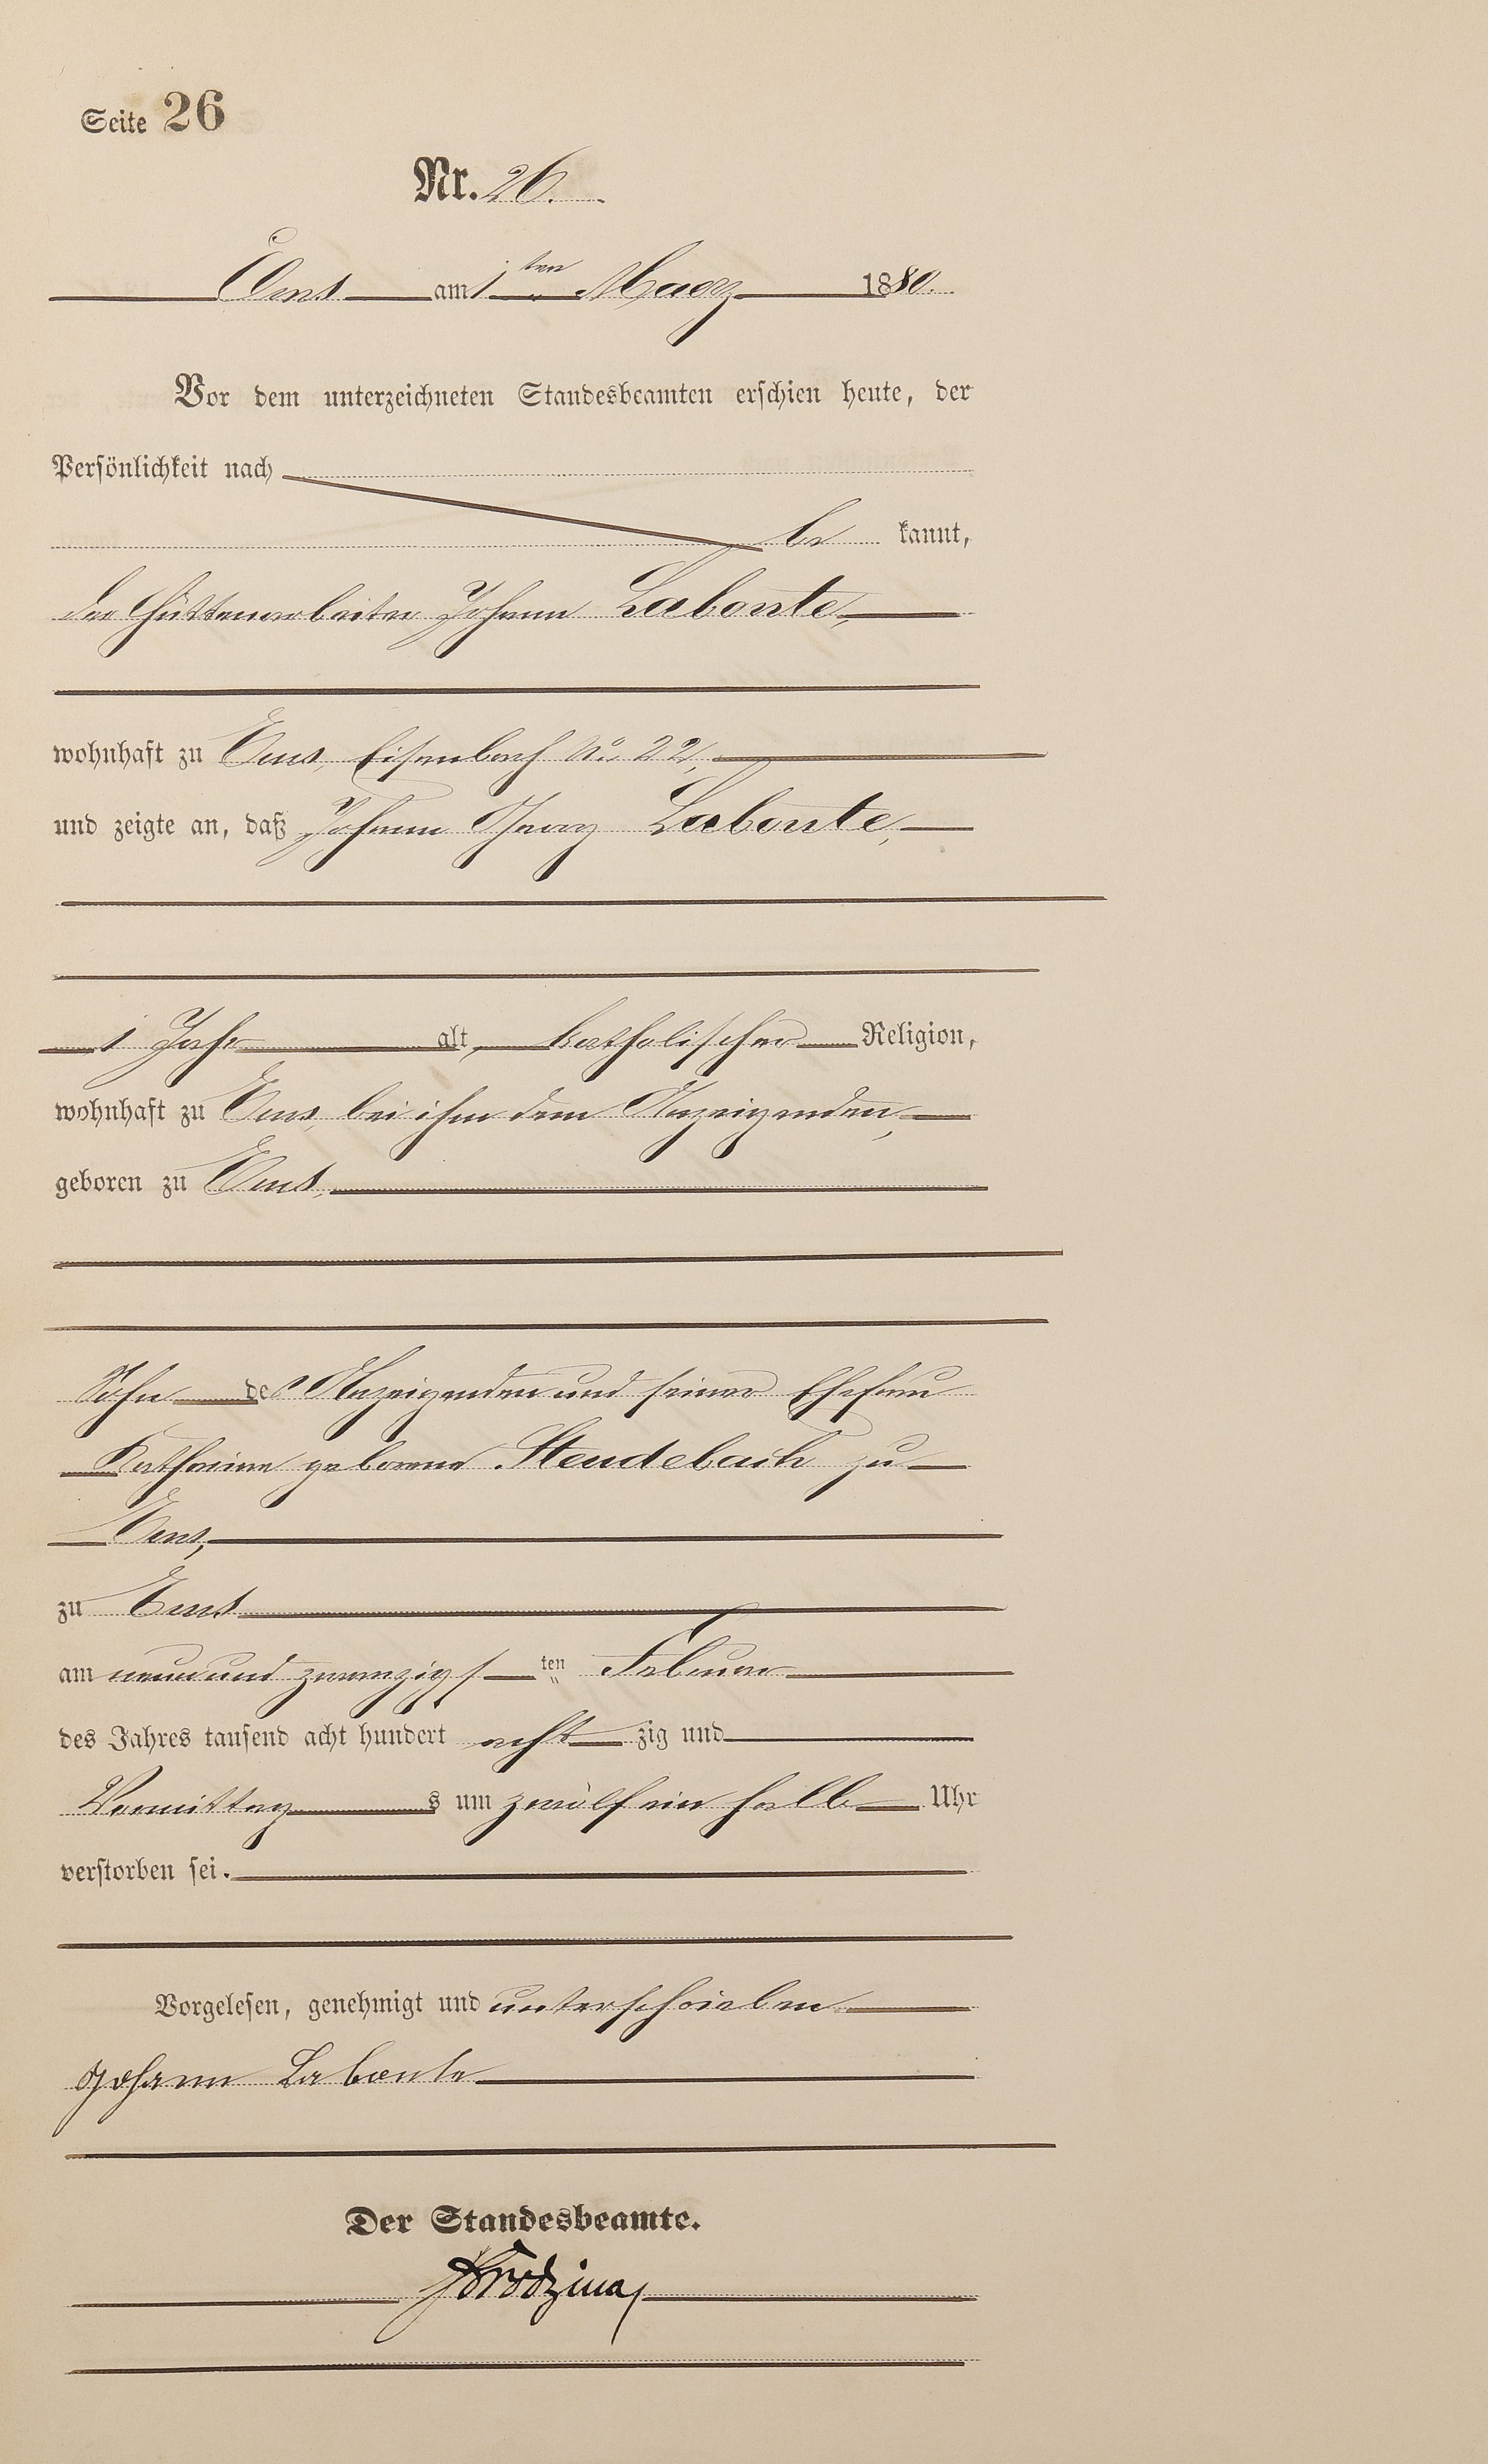 Seite 26
Nr. 26.
Ems am 1ten Maerz 1880.
Vor dem unterzeichneten Standesbeamten erschien heute, der
Persönlichkeit nach
be kannt,
der Hüttenarbeiter Johann Labonte,
wohnhaft zu Ems, Eisenbach No 22,
und zeigte an, daß Johann Georg Labonte,
1 Jahr alt, katholischer Religion,
wohnhaft zu Ems, bei ihm dem Anzeigenden,
geboren zu Ems,
Sohn des Anzeigenden und seiner Ehefrau
Katharina geborene Steudebach zu
Ems,
zu Ems
am neunundzwanzigsten Februar
des Jahres tausend acht hundert achtzig und
Vormittags um zwölf ein halb Uhr
verstorben sei.
Vorgelesen, genehmigt und unterschrieben
Johann Labonte
Der Standesbeamte.